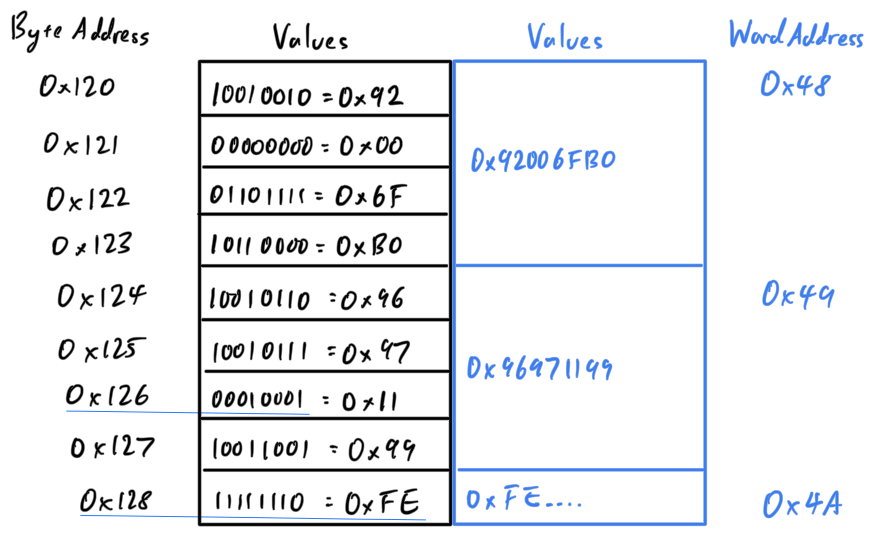 Byte Address Values Values Word Address
0x120 10010010 = 0x92 0x48
0x121 00000000 = 0x00 0x92006FB0
0x122 01101111 = 0x6F
0x123 10110000 = 0xB0
0x124 10010110 = 0x96 0x49
0x125 10010111 = 0x97 0x96971199
0x126 00010001 = 0x11
0x127 10011001 = 0x99
0x128 11111110 = 0xFE 0xFE.... 0x4A